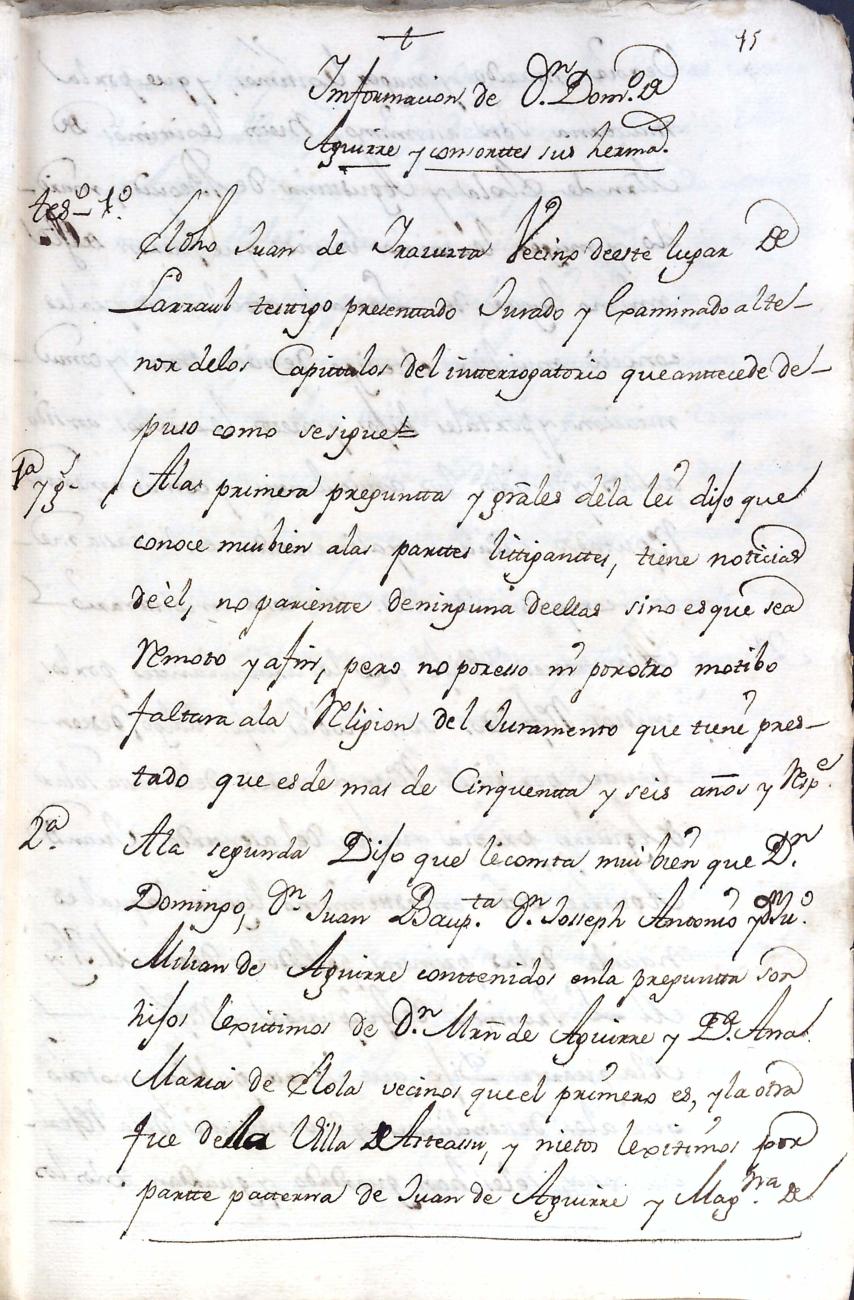 15
Informacion de Dn. Domo. de
Aguirre y consorttes sus hermas.
tesº 1º
Juan de Iraurta Vecino deeste lugar de
Larraul testigo presenttado Jurado y Examinado al te-
nor delos Capittulos del intterrogatorio que anttecede de-
puso como sesigue=
1a y gs
Alas primera preguntta y grales dela lei dijo que
conoce mui bien alas parttes littiganttes, tiene noticias
de èl, no parientte deninguna deellas sino es que sea
Remoto y afin, pero no poresso ni por otro motibo
faltara ala Religion del Juramento que tiene pres-
tado que es de mas de Cinquentta y seis años y respe.
2a.
Ala segunda Dijo que leconsta mui bien que Dn.
Domingo, Dn. Juan Baupta. Dn. Josseph Antonio y Dn. Juo.
Milian de Aguirre conttenidos enla preguntta son
hijos lexitimos de Dn. Mrn de Aguirre y Da. Ana
Maria de Elola vecinos que el primero es, y la otra
fue de la Villa de Asteasu, y nietos lexitimos por
partte patterna de Juan de Aguirre y Magna. de